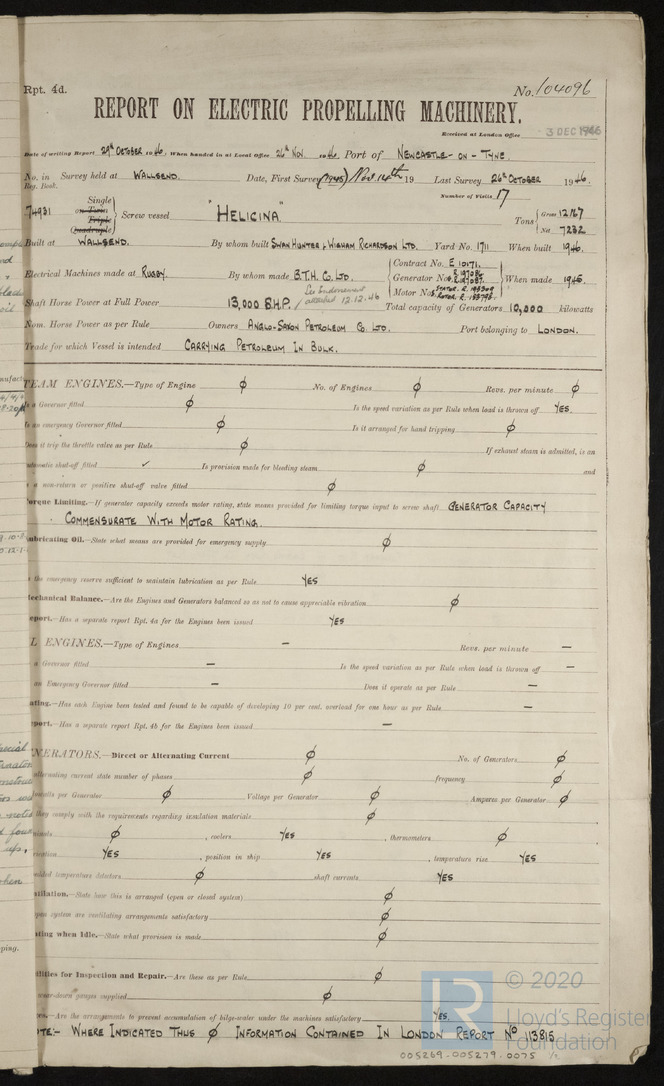 Rpt. 4d. No. 104096
REPORT ON ELECTRIC PROPELLING MACHINERY.
Received at London Office 3 DEC 1946
Date of writing Report 29th OCTOBER 1946. When handed in at Local Office 26th NOV. 1946 Port of NEWCASTLE-ON-TYNE.
No. in Survey held at WALLSEND. Date, First Survey (1945) Nov. 14th 19 Last Survey 26th OCTOBER 1946.
Reg. Book. Number of Visits 17
Single
74931 on Twin Screw vessel "HELICINA" Tons Gross 12167
Triple Net 7232
Quadruple
Built at WALLSEND. By whom built SWAN HUNTER & WIGHAM RICHARDSON LTD. Yard No. 1711 When built 1946.
Contract No. E 10171.
Electrical Machines made at RUGBY. By whom made B.T.H. CO. LTD. Generator Nos. When made 1946.
Motor No.
Shaft Horse Power at Full Power 13,000 B.H.P. / See Endorsement attached 12.12.46 Total capacity of Generators 10,000 kilowatts
Nom. Horse Power as per Rule Owners ANGLO-SAXON PETROLEUM CO. LTD. Port belonging to LONDON.
Trade for which Vessel is intended CARRYING PETROLEUM IN BULK.
TEAM ENGINES.—Type of Engine ϕ No. of Engines ϕ Revs. per minute ϕ
Is a Governor fitted ϕ Is the speed variation as per Rule when load is thrown off YES.
Is an emergency Governor fitted ϕ Is it arranged for hand tripping ϕ
Does it trip the throttle valve as per Rule ϕ If exhaust steam is admitted, is an
automatic shut-off fitted ✓ Is provision made for bleeding steam ϕ and
is a non-return or positive shut-off valve fitted ϕ
Torque Limiting.—If generator capacity exceeds motor rating, state means provided for limiting torque input to screw shaft GENERATOR CAPACITY
COMMENSURATE WITH MOTOR RATING.
Lubricating Oil.—State what means are provided for emergency supply ϕ
Is the emergency reserve sufficient to maintain lubrication as per Rule YES
Mechanical Balance.—Are the Engines and Generators balanced so as not to cause appreciable vibration ϕ
eport.—Has a separate report Rpt. 4a for the Engines been issued YES
L ENGINES.—Type of Engines — Revs. per minute —
a Governor fitted — Is the speed variation as per Rule when load is thrown off —
an Emergency Governor fitted — Does it operate as per Rule —
ating.—Has each Engine been tested and found to be capable of developing 10 per cent. overload for one hour as per Rule —
port.—Has a separate report Rpt. 4b for the Engines been issued —
NERATORS.—Direct or Alternating Current ϕ No. of Generators ϕ
alternating current state number of phases ϕ frequency ϕ
owatts per Generator ϕ Voltage per Generator ϕ Amperes per Generator ϕ
they comply with the requirements regarding insulation materials ϕ
minals ϕ, coolers YES, thermometers ϕ
YES, position in ship YES, temperature rise YES
temperature detectors ϕ shaft currents YES
tilation.—State how this is arranged (open or closed system) ϕ
pen system are ventilating arrangements satisfactory ϕ
ating when Idle.—State what provision is made ϕ
ilities for Inspection and Repair.—Are these as per Rule ϕ
wear-down gauges supplied ϕ
Are the arrangements to prevent accumulation of bilge-water under the machines satisfactory YES.
OTE:- WHERE INDICATED THUS ϕ INFORMATION CONTAINED IN LONDON REPORT No 113815
LR © 2020
Lloyd's Register
Foundation
005269-005279-0075